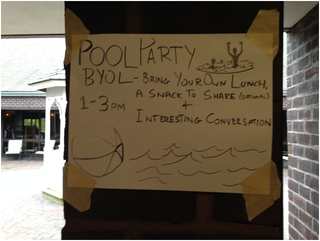 POOL PARTY
BYOL - BRING YOUR OWN LUNCH,
1-3 PM A SNACK TO SHARE (OPTIONAL)
+
INTERESTING CONVERSATION